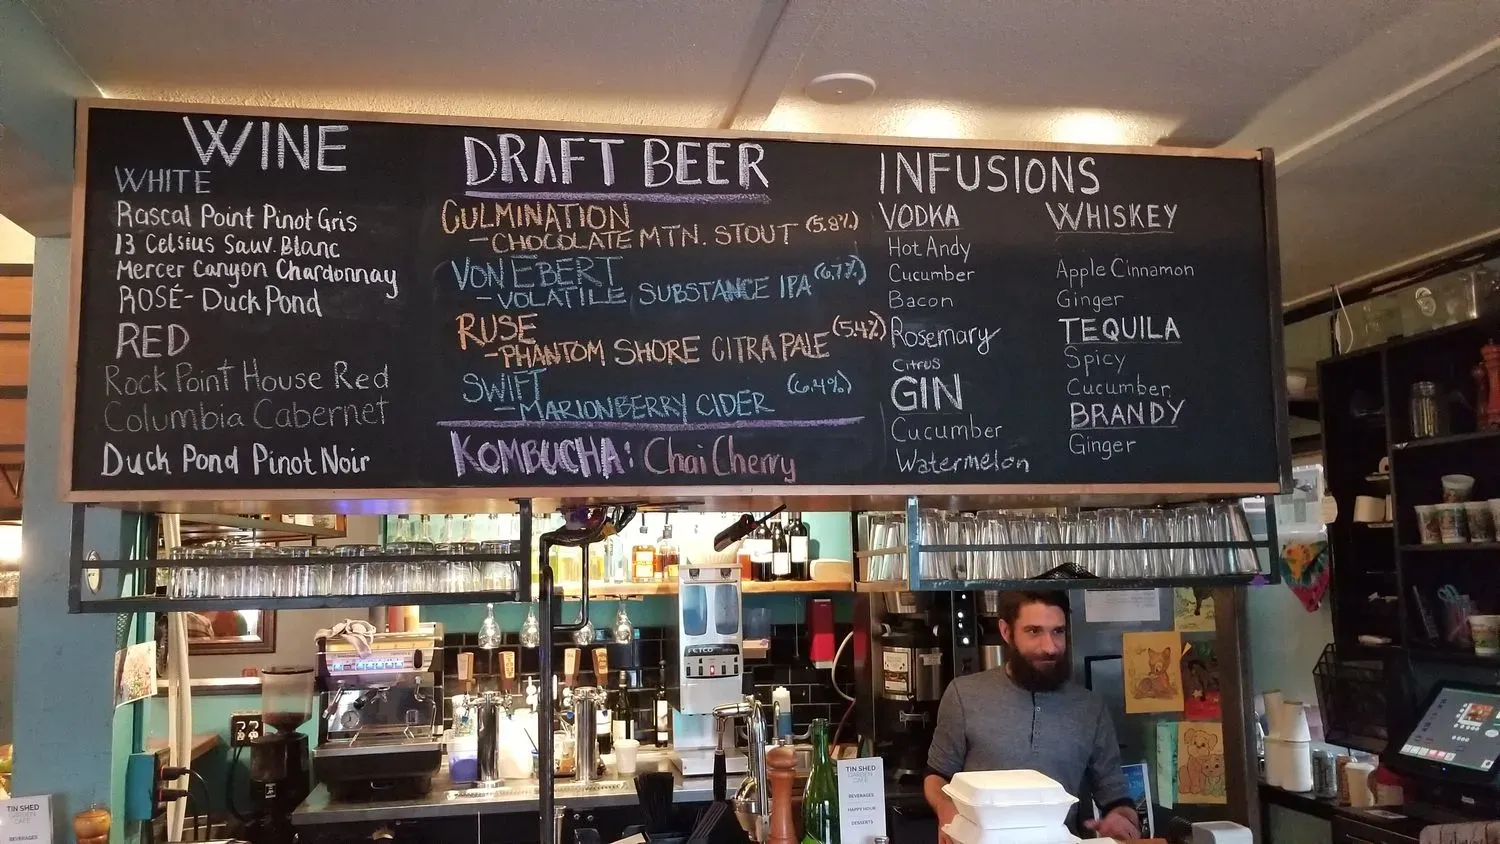 WINE
WHITE
Rascal Point Pinot Gris
13 Celsius Sauv. Blanc
Mercer Canyon Chardonnay
ROSÉ - Duck Pond
RED
Rock Point House Red
Columbia Cabernet
Duck Pond Pinot Noir
DRAFT BEER
CULMINATION
- CHOCOLATE MTN. STOUT (5.8%)
VON EBERT
- VOLATILE SUBSTANCE IPA (6.7%)
RUSE
- PHANTOM SHORE CITRA PALE (5.4%)
SWIFT
- MARIONBERRY CIDER (6.4%)
KOMBUCHA: Chai Cherry
INFUSIONS
VODKA
Hot Andy
Cucumber
Bacon
Rosemary
Citrus
GIN
Cucumber
Watermelon
WHISKEY
Apple Cinnamon
Ginger
TEQUILA
Spicy
Cucumber
BRANDY
Ginger
FETCO
TIN SHED
GARDEN
CAFE
BEVERAGES
HAPPY HOUR
DESSERTS
TIN SHED
GARDEN
CAFE
BEVERAGES